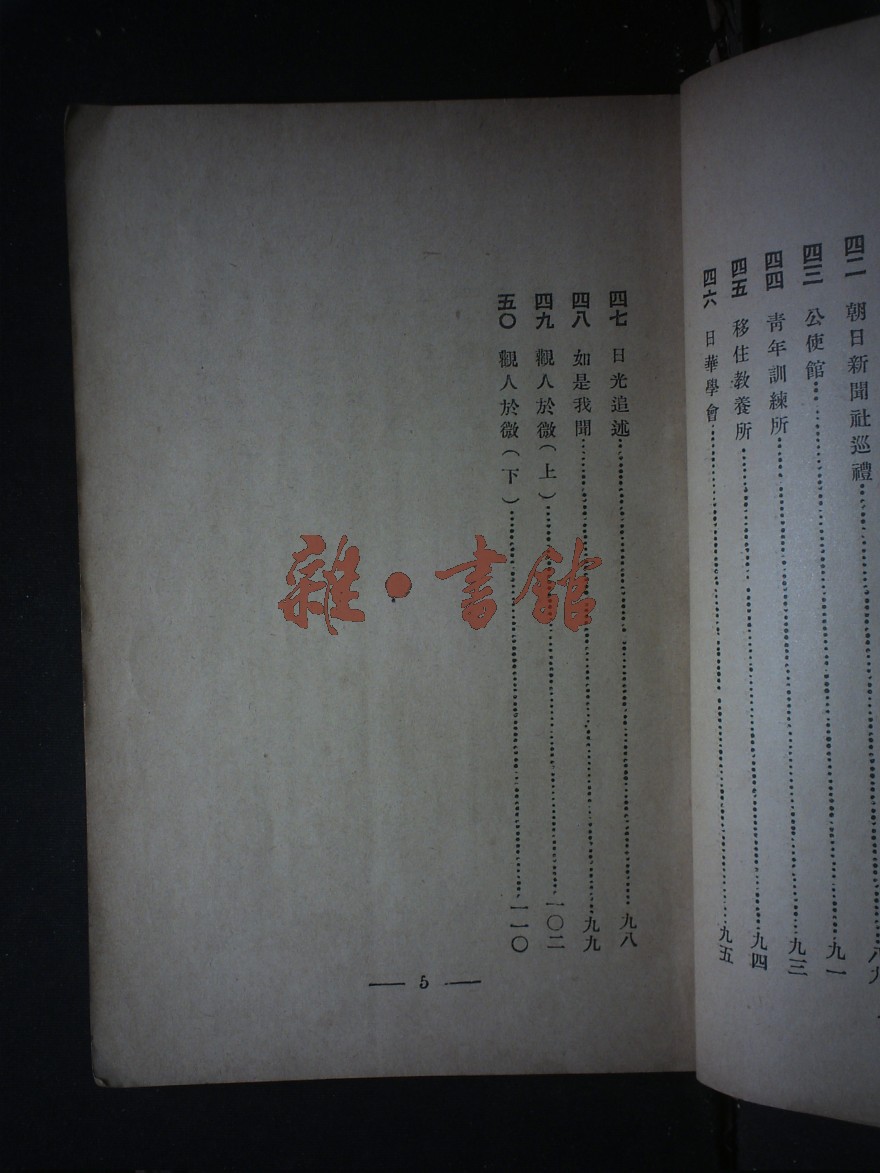 四二 朝日新聞社巡禮……八九
四三 公使館……九一
四四 青年訓練所……九三
四五 移住教養所……九四
四六 日華學會……九五
四七 日光追述……九八
四八 如是我聞……九九
四九 觀人於微(上)……一〇二
五〇 觀人於微(下)……一一〇
— 5 —
雜·書館